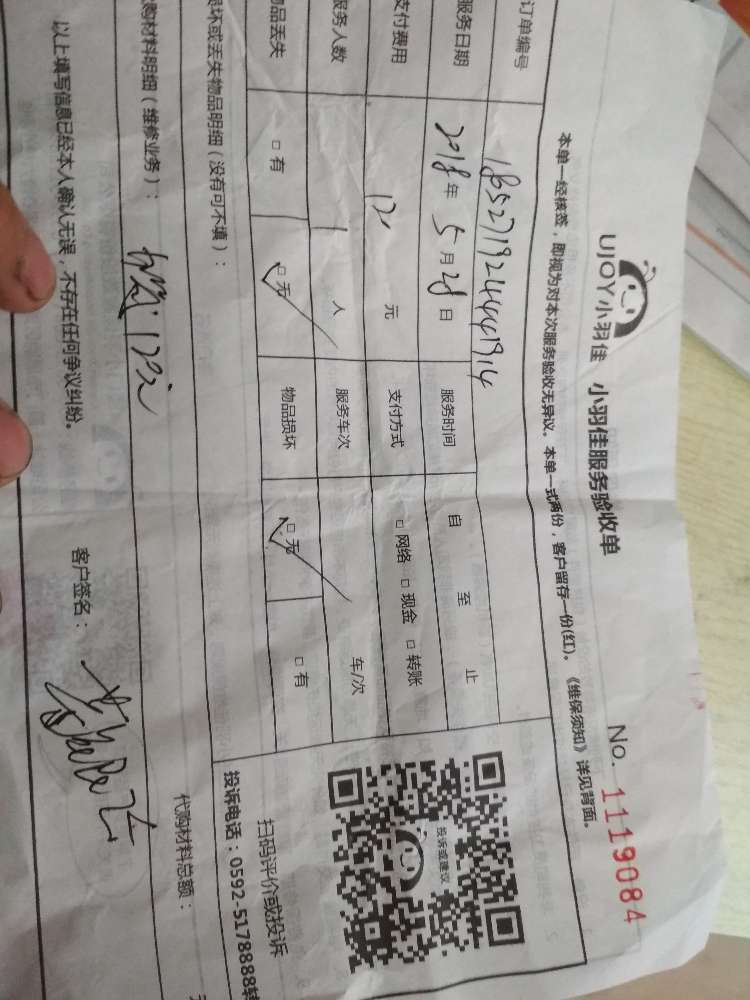 UJOY小羽佳 小羽佳服务验收单
No. 1119084
本单一经核签，即视为对本次服务验收无异议。本单一式两份，客户留存一份(红)。《维保须知》详见背面。
订单编号
服务日期 2018年5月28日 服务时间 自 至 止
支付费用 120 元 支付方式 □网络 □现金 □转账
服务人数 1 人 服务车次 车/次
物品丢失 □有 □无 物品损坏 □无 □有
损坏或丢失物品明细（没有可不填）：
代购材料明细（维修业务）：
代购材料总额：
以上填写信息已经本人确认无误，不存在任何争议纠纷。
客户签名：
投诉或建议
扫码评价或投诉
投诉电话：0592-5178888转